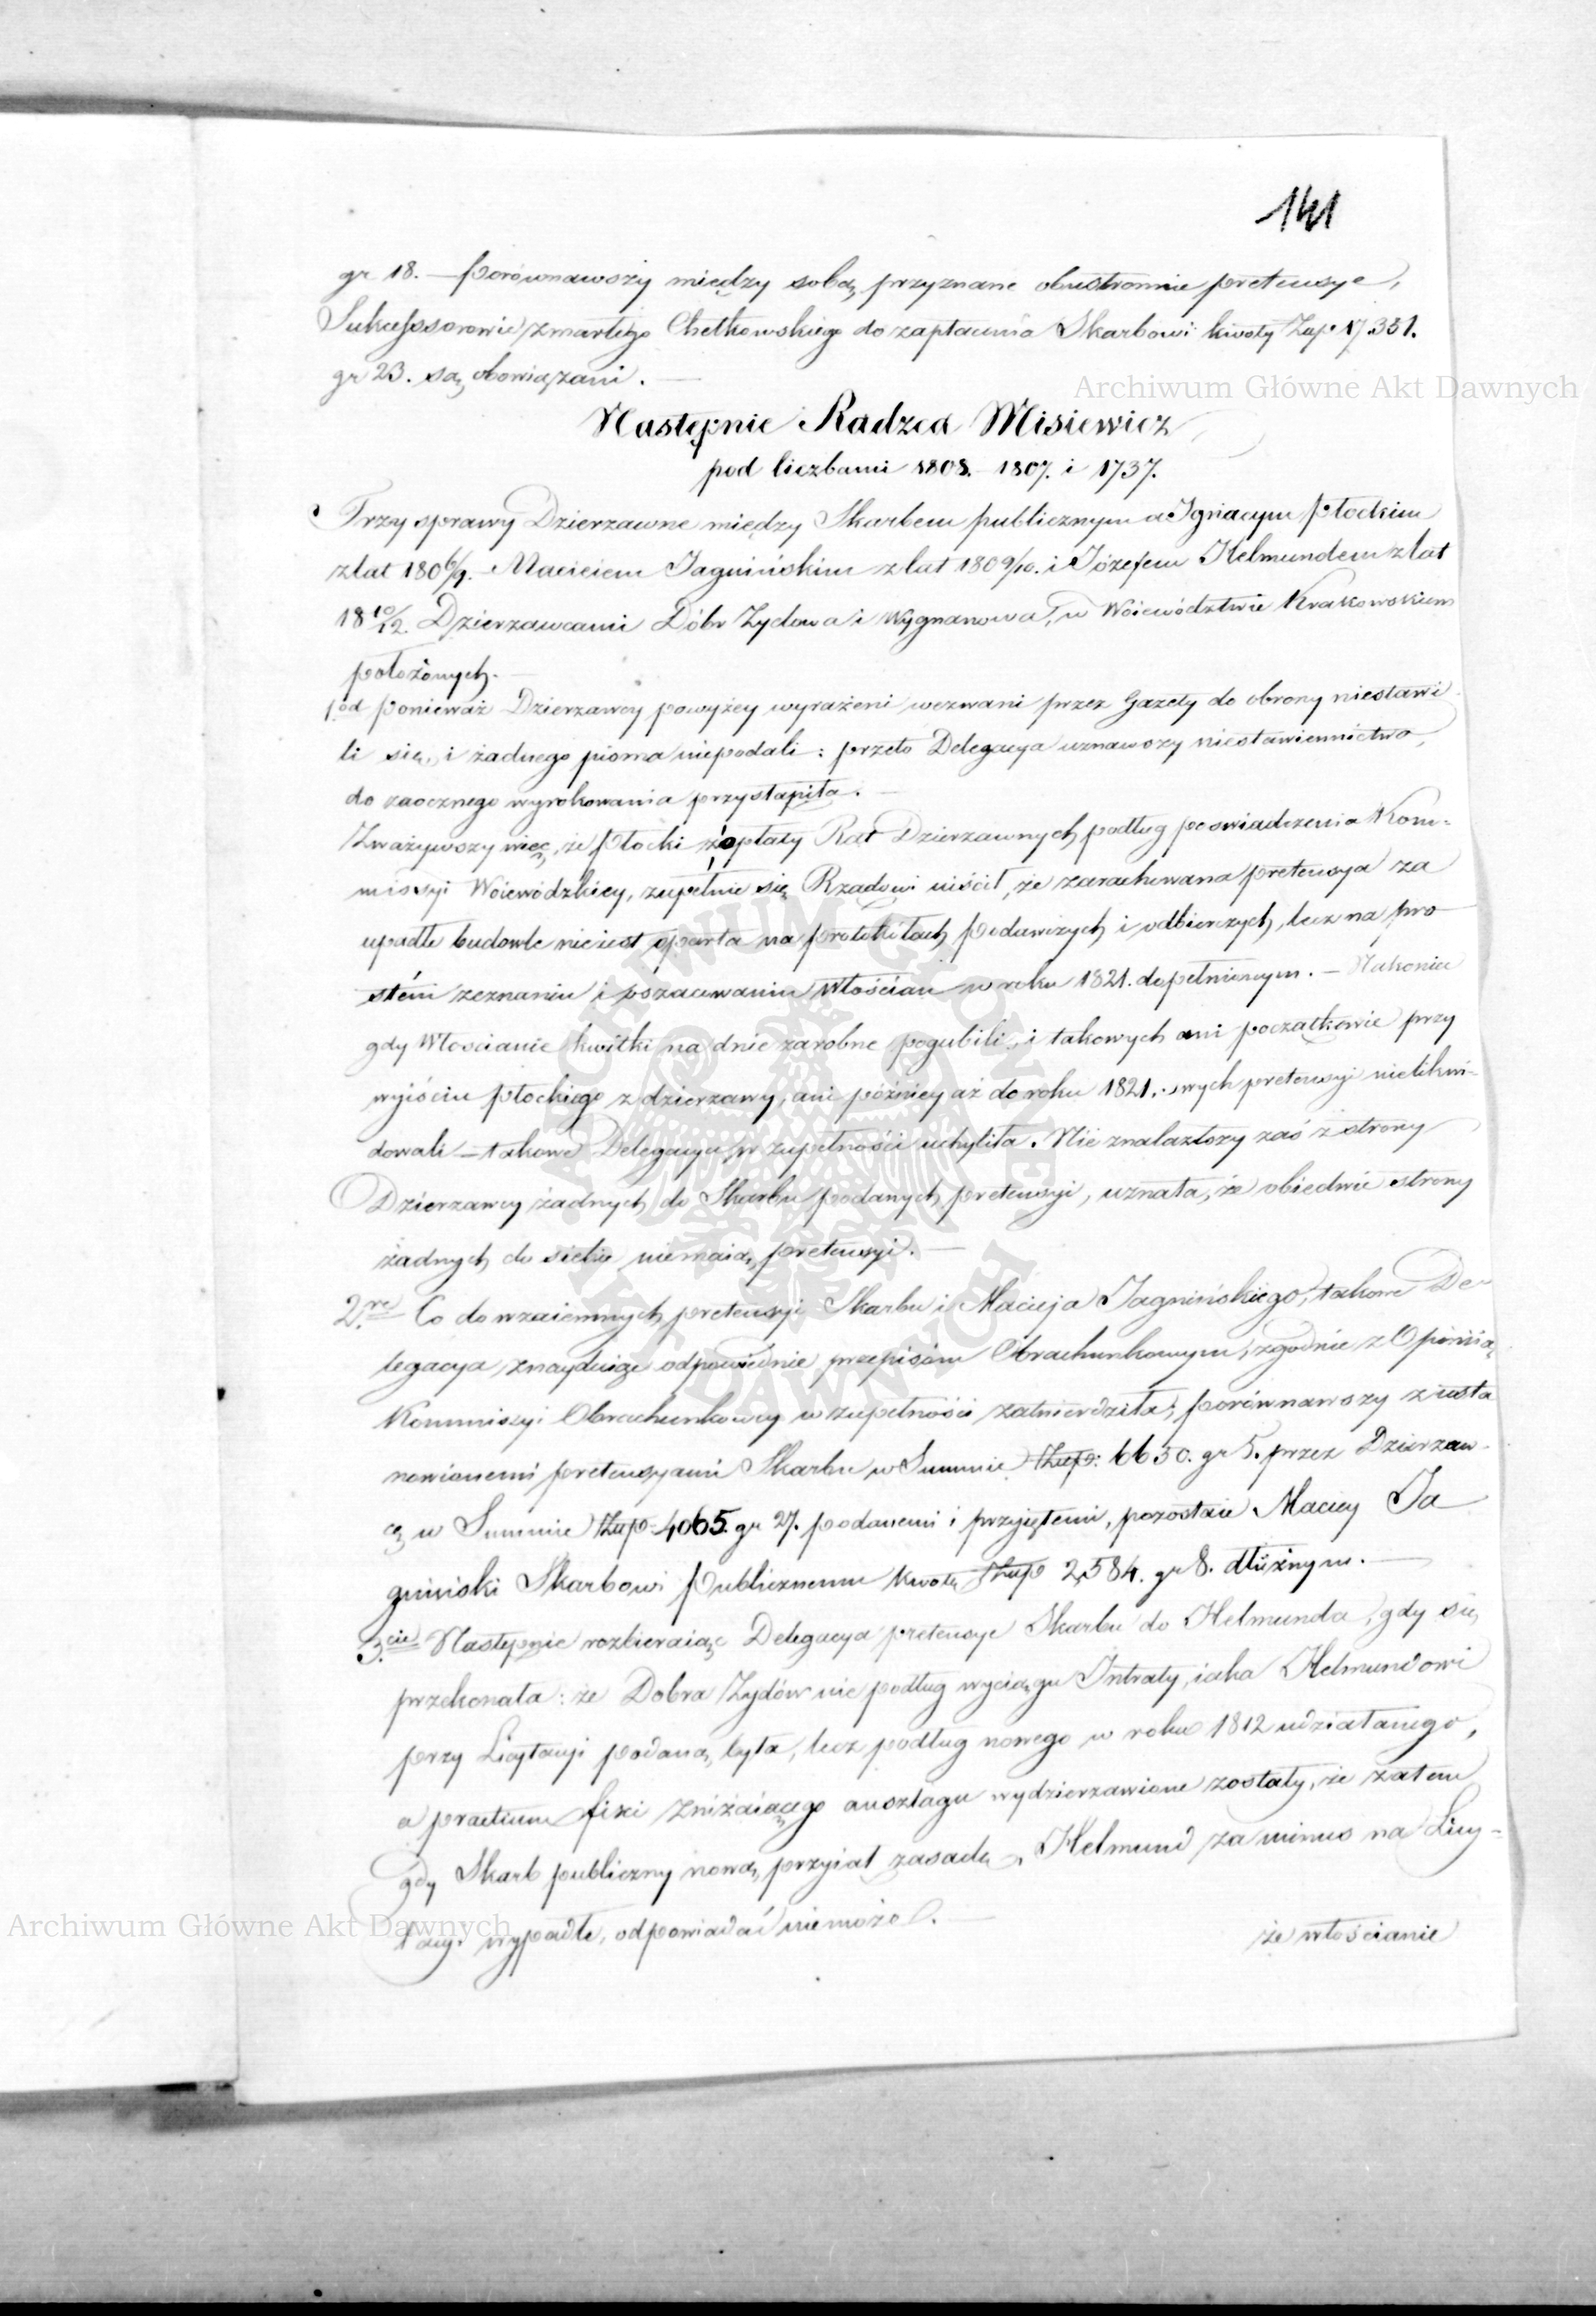 141
gr 18. — Porównawszy między sobą przyznane obustronnie pretensye,
Sukcessorowie zmarłego Chełkowskiego do zapłacenia Skarbowi kwoty Złp 17,331.
gr 23. są obowiązani. —
Archiwum Główne Akt Dawnych
Następnie Radzca Misiewicz
pod liczbami 1808. 1807. i 1737.
Trzy sprawy Dzierzawne między Skarbem publicznym a Ignacym Płockim
z lat 180 6/9. Macieiem Jagnińskim z lat 1809/10. i Józefem Helmundem z lat
18 10/12. Dzierzawcami Dóbr Zydowa i Wygnanowa, w Woiewództwie Krakowskiem
położonych. —
1.od Ponieważ Dzierzawcy powyżey wyrażeni wezwani przez Gazety do obrony niestawi
li się, i żadnego pisma niepodali : przeto Delegacya uznawszy niestawiennictwo,
do zaocznego wyrokowania przystąpiła. —
Zważywszy więc, że Płocki z opłaty Rat Dzierzawnych podług poświadczenia Kom-
missyi Woiewódzkiey, zupełnie się Rządowi uiścił, że zarachowana pretensya za
upadłe budowle nie iest oparta na protokółach podawczych i odbierczych, lecz na pro
stém zeznaniu i poszacowaniu Włościan w roku 1821. dopełnionym. — Nakoniec
gdy Włościanie kwitki na dnie zarobne pogubili, i takowych ani początkowie przy
wyiściu Płockiego z dzierzawy, ani późniey aż do roku 1821. swych pretensyi nielikwi-
dowali — takowe Delegacya w zupełności uchyliła. Nie znalazłszy zaś z strony
Dzierzawcy żadnych do Skarbu podanych pretensyi, uznała, że obiedwie strony
żadnych do siebie niemaią pretensyi. —
2.re Co do wzaiemnych pretensyi Skarbu i Macieja Jagnińskiego, takowe De
legacya znayduiąc odpowiednie przepisom Obrachunkowym, zgodnie z Opinią
Kommissyi Obrachunkowey w zupełności zatwierdziła; porównawszy z usta
nowionemi pretensyami Skarbu w Summie Złp: 6650. gr 5. przez Dzierzaw-
cę w Summie Złp 4065. gr 27. podanemi i przyjętemi, pozostaie Maciey Ja
gniński Skarbowi Publicznemu kwotę Złp 2,584. gr 8. dłużnym. —
3.cie Następnie rozbieraiąc Delegacya pretensye Skarbu do Helmunda, gdy się
przekonała : że Dobra Zydów nie podług wyciągu Intraty, iaka Helmundowi
przy Licytacyi podaną była, lecz podług nowego w roku 1812 udziałanego,
a praetium fisci zniżaiącego anszlagu wydzierzawione zostały, że zatem
gdy Skarb publiczny nową przyiął zasadę, Helmund za minus na Licy-
tacyi wypadłe, odpowiadać niemoże. —
że włościanie
Archiwum Główne Akt Dawnych
ARCHIWUM GŁÓWNE AKT DAWNYCH